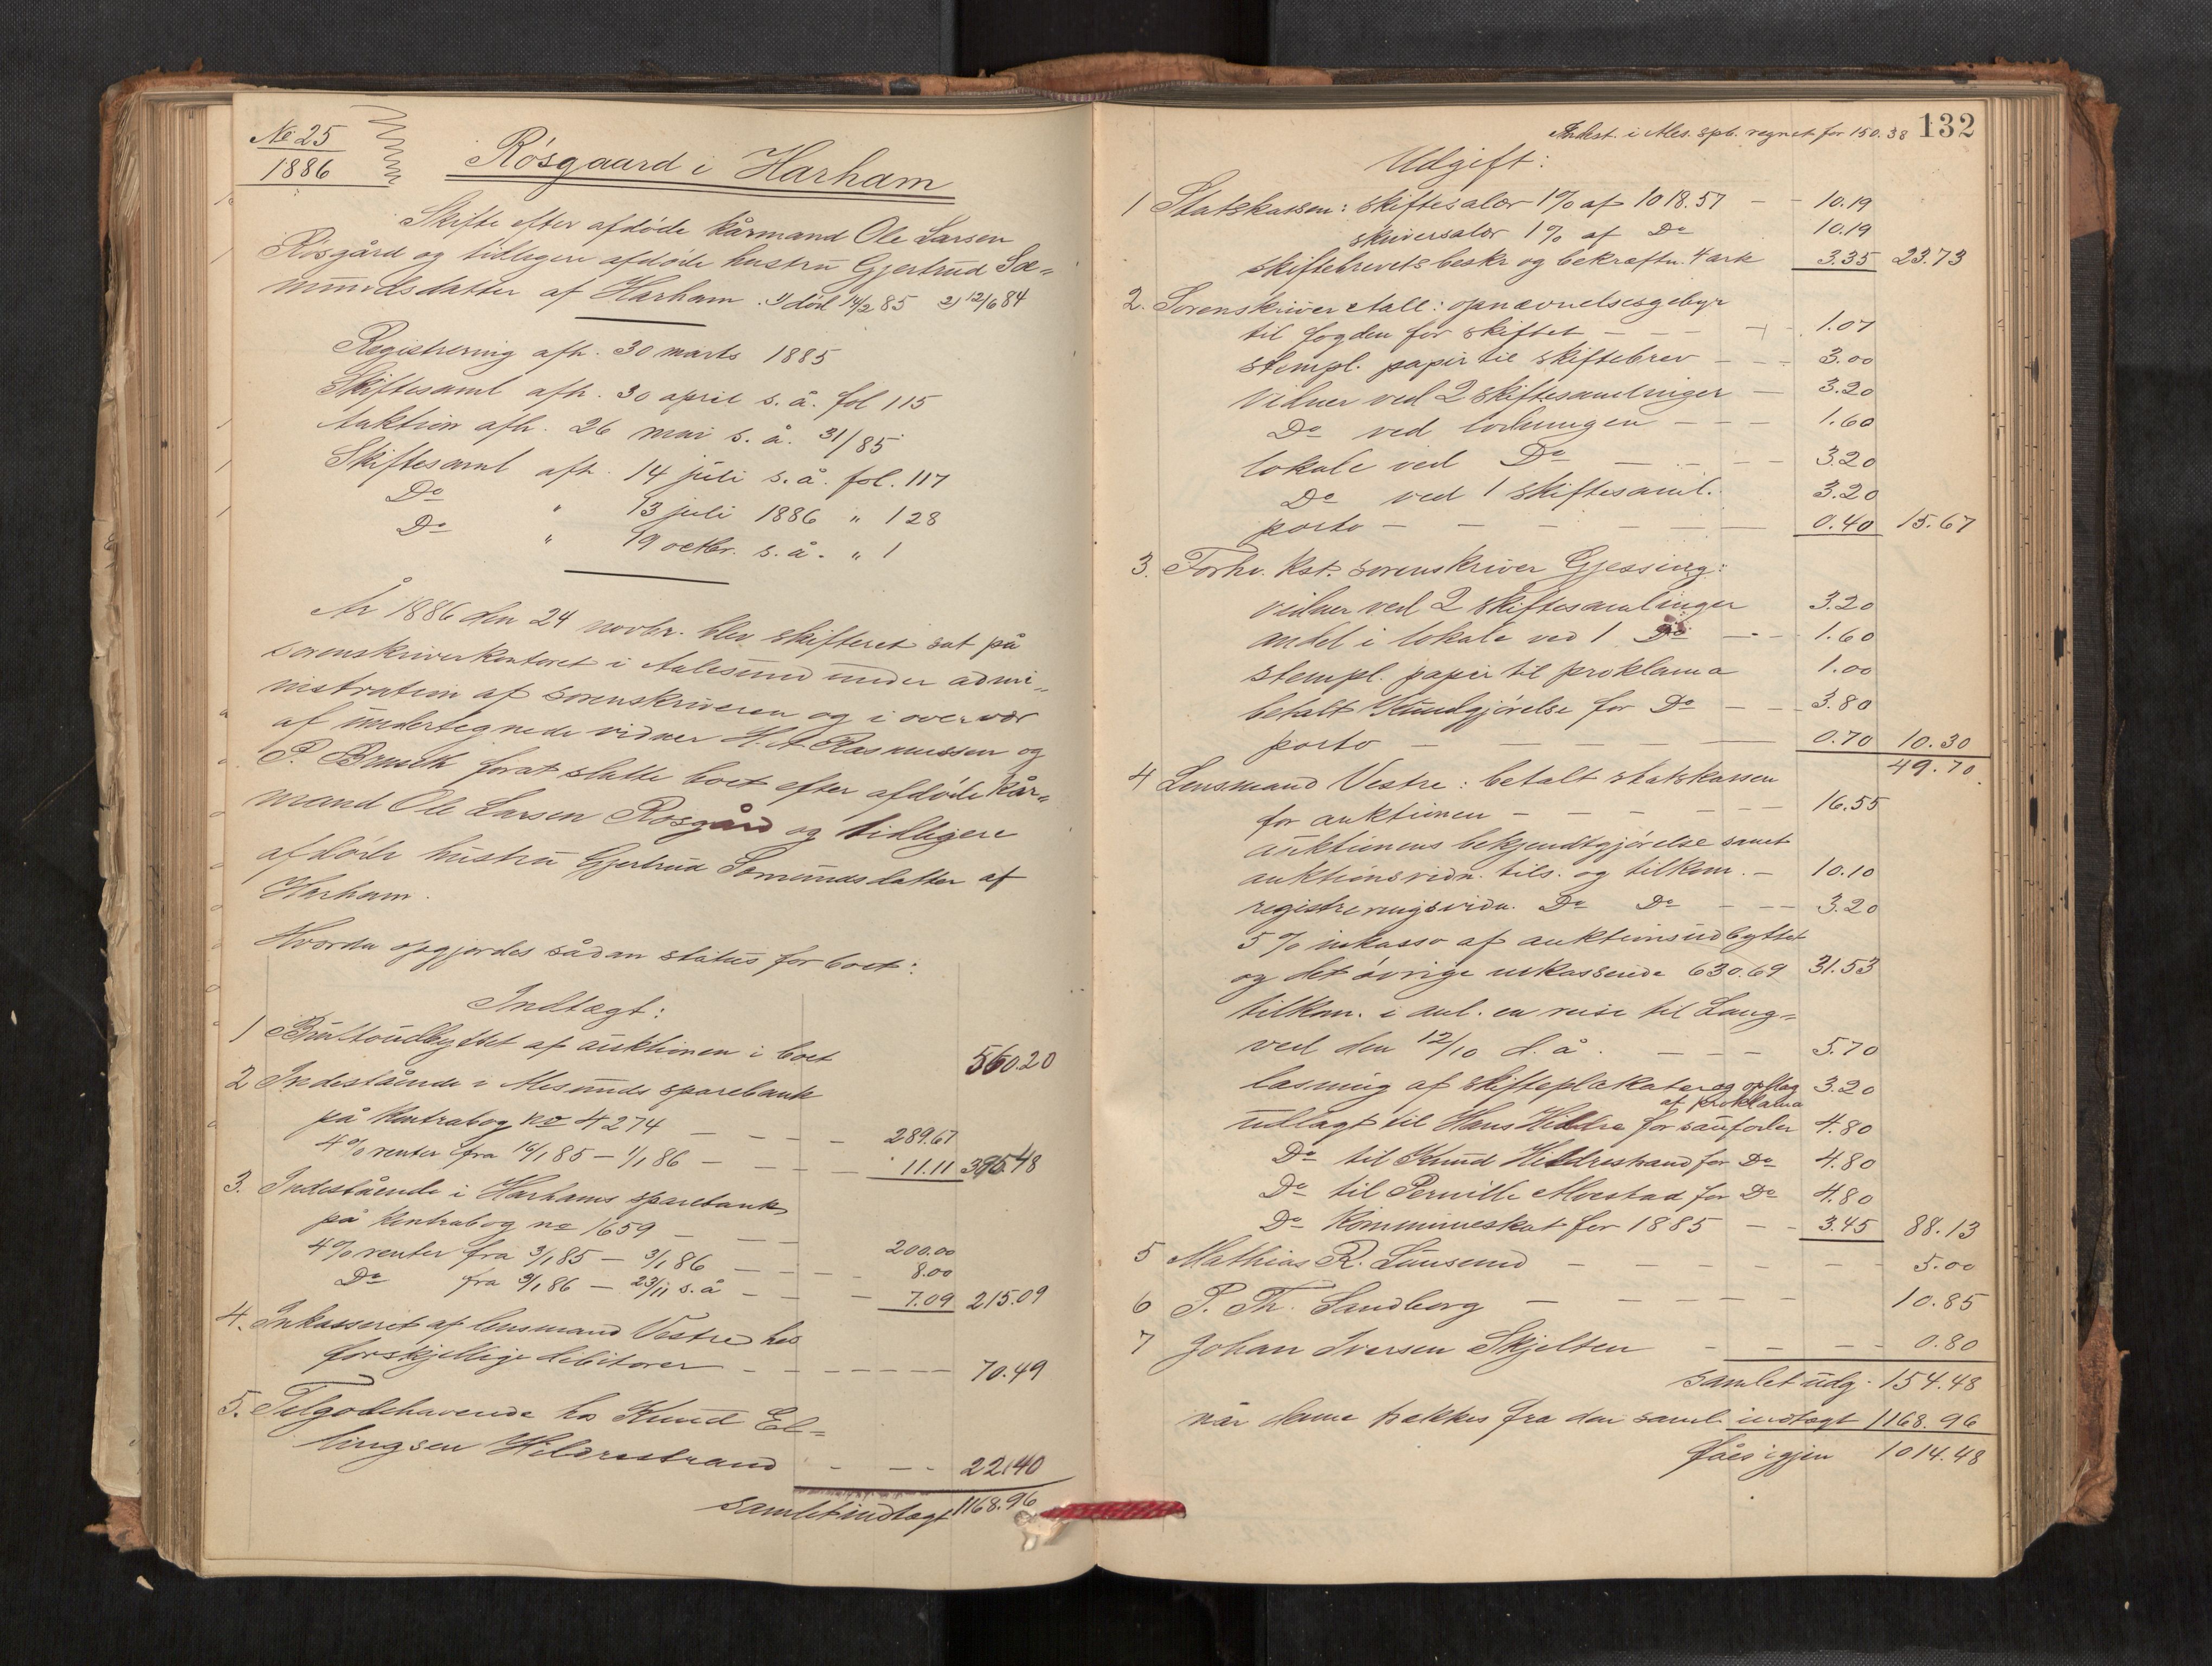 No 25
1886
Røsgaard i Harham
Skifte efter afdøde kårmand Ole Larsen
Røsgård og tidligere afdøde hustru Gjertrud Sæ=
mundsdatter af Harham. 1) død 14/2 85 2) 12/6 84
Registrering afh. 30 marts 1885
Skiftesaml afh. 30 april s. å. fol 115
Auktion afh. 26 mai s. å. 31/85
Skiftesaml afh. 14 juli s. å. fol. 117
Do " 13 juli 1886 " 128
Do " 19 octbr. s. å. " 1
År 1886 den 24 novbr. blev skifteret sat på
sorenskriverkontoret i Aalesund under admi=
nistration af sorenskriveren og i overvær
af undertegnede vidner H. A. Rasmussen og
P. Brusdk forat slutte boet efter afdøde kår=
mand Ole Larsen Røsgård og tidligere
afdøde hustru Gjertrud Semundsdatter af
Harham.
Hvorda opgjordes sådan status for boet:
Indtægt:
1 Bruttoudbyttet af auktionen i boet 560.20
2 Indestående i Alesunds sparebank
på kontrabog no 4274 - - - - 289.67
4% renter fra 16/1 85 - 1/1 86 - - - - 11.11
3. Indestående i Harhams sparebank
på kontrabog no 1659 - - - 200.00
4% renter fra 3/1 85 - 3/1 86 - - - - 8.00
Do fra 3/1 86 - 23/11 s. å - - - 7.09 215.09
4. Inkasseret af lensmand Vestre hos
forskjellige debitorer - - - - - - - 70.49
5. Tilgodehavende hos Knud El=
lingsen Hildrestrand - - - 22.40
samlet indtægt 1168.96
132
Indest. i Ales. spb. regnet for 150.38
Udgift:
1 Statskassen: skiftesalær 1% af 1018.57 - - 10.19
skriversalær 1% af Do 10.19
skiftebrevets beskr og bekræftn. 4 ark 3.35 23.73
2. Sorenskriver Aall: opnævnelsesgebyr
til fogden for skiftet - - - - - 1.07
stempl. papir til skiftebrev - - - 3.00
vidner ved 2 skiftesamlinger - 3.20
Do ved lodningen - - - 1.60
lokale ved Do - - - - 3.20
Do ved 1 skiftesaml. 3.20
porto - - - - - - 0.40 15.67
3. Forhv. kst. sorenskriver Gjessing:
vidner ved 2 skiftesamlinger 3.20
andel i lokale ved 1 Do - - - 1.60
stempl. papir til proklama 1.00
betalt kundgjørelse for Do - - - 3.80
porto - - - - - - 0.70 10.30
49.70
4 Lensmand Vestre: betalt statskassen
for auktionen - - - - - - 16.55
auktionens bekjendtgjørelse samt
auktionsvidn. tils. og tilkom. - 10.10
registreringsvidn. Do Do - - - 3.20
5% inkasso af auktionsudbyttet
og det øvrige inkasserede 630.69 31.53
tilkom. i anl. en reise til Lang=
ved den 12/10 d. å. - - - 5.70
læsning af skifteplakater og opslag 3.20
af proklama
udlagt til Hans Hildre for sauefoder 4.80
Do til Knud Hildrestrand for Do 4.80
Do til Pernille Alvestad for Do 4.80
Do kommuneskat for 1885 - - 3.45 88.13
5 Mathias R. Lausund - - - - - - - 5.00
6 P. Th. Sandberg - - - - - - 10.85
7 Johan Iversen Skjelten - - - - 0.80
samlet udg. 154.48
når denne trækkes fra den saml. indtægt 1168.96
fåes igjen 1014.48